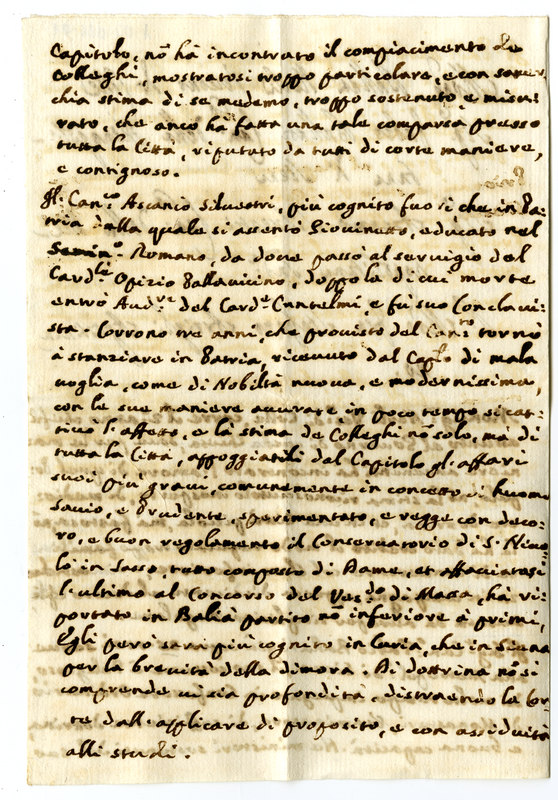 Capitolo, nō hà incontrato il compiacimento de
Colleghi, mostratosi troppo particolare, e con sover,
chia stima di se medemo, troppo sostenuto, e misu,
rato, che anco hà fatta una tale comparsa presso
tutta la Città, riputato da tutti di corte maniere,
e contignoso.
Il Can.co Ascanio Silvestri, più cognito fuori che in Pa=
tria dalla quale si assentò Giovinetto, educato nel
Semin.o Romano, da dove passò al servigio del
Card.le Opizio Pallavicino, doppo la di cui morte
entrò Aud.re del Card.e Cantelmi, e fù suo Conclavi=
sta. Corrono tre anni, che provisto del Can.to tornò
à stanziare in Patria, ricevuto dal Caplo di mala
voglia, come di Nobiltà nuova, e modernissima,
con le sue maniere accurate in poco tempo si cat=
tivò l'affetto, e la stima de Colleghi nō solo, mà di
tutta la Città, appoggiatili dal Capitolo gl'affari
suoi più gravi, comunemente in concetto di huomo
savio, e Prudente, sperimentato, e regge con deco=
ro, e buon regolamento il Conservatorio di S. Nicco=
lò in Sasso, tutto composto di Dame, et affacciatosi
l'ultimo al Concorso del Ves.do di Massa, hà ri=
portato in Balìa partito nō inferiore à primi,
Egli però sarà più cognito in Curia, che in Siena
per la brevità della dimora. Di dottrina nō si
comprende vi sia profondità, distraendo la Cor=
te dall'applicare di proposito, e con assiduità
alli studi.